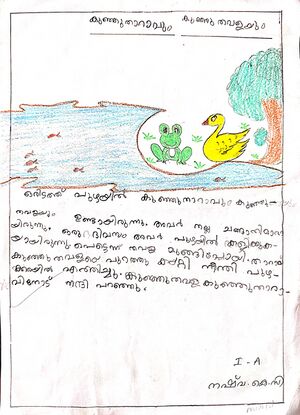 കുഞ്ഞുതാറാവും കുഞ്ഞുതവളയും
ഒരിടത്ത് പുഴയിൽ കുഞ്ഞുതാറാവും കുഞ്ഞു-
തവളയും ഉണ്ടായിരുന്നു. അവർ നല്ല ചങ്ങാതിമാരാ
യിരുന്നു. ഒരുദിവസം അവർ പുഴയിൽ കളിക്കുക
യായിരുന്നു പെട്ടെന്ന് തവള മുങ്ങിപ്പോയി. താറാവ്
കുഞ്ഞുതവളയെ പുറത്തു കയറ്റി നീന്തി പുഴ-
ക്കരയിൽ എത്തിച്ചു. കുഞ്ഞുതവള കുഞ്ഞുതാറാ-
വിനോട് നന്ദി പറഞ്ഞു.
I - A
നഷ്‌വ. കെ.സി